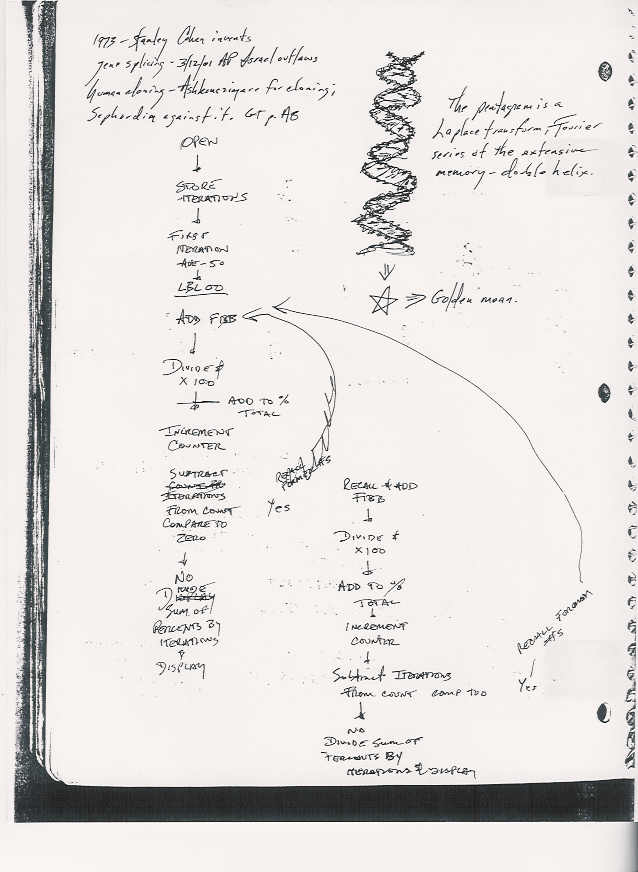 1973 - Stanley Cohen invents
gene splicing - 3/12/01 AP Israel outlaws
human cloning - Ashkenazim are for cloning;
Sephardim against it. GT p. A8
The pentagram is a
Laplace transform, Fourier
series of the extensive
memory - double helix.
⇒ Golden mean.
OPEN
STORE
ITERATIONS
FIRST
ITERATION
- 50
LBL 00
ADD FIBB
DIVIDE &
X 100
ADD TO %
TOTAL
INCREMENT
COUNTER
SUBTRACT
ITERATIONS
FROM COUNT
COMPARE TO
ZERO
RECALL
Yes
NO
DIVIDE
SUM OF
PERCENTS BY
ITERATIONS
&
DISPLAY
RECALL & ADD
FIBB
DIVIDE &
X 100
ADD TO %
TOTAL
INCREMENT
COUNTER
Subtract ITERATIONS
FROM COUNT COMP TO 0
RECALL
#S
Yes
NO
DIVIDE SUM OF
PERCENTS BY
ITERATIONS & DISPLAY